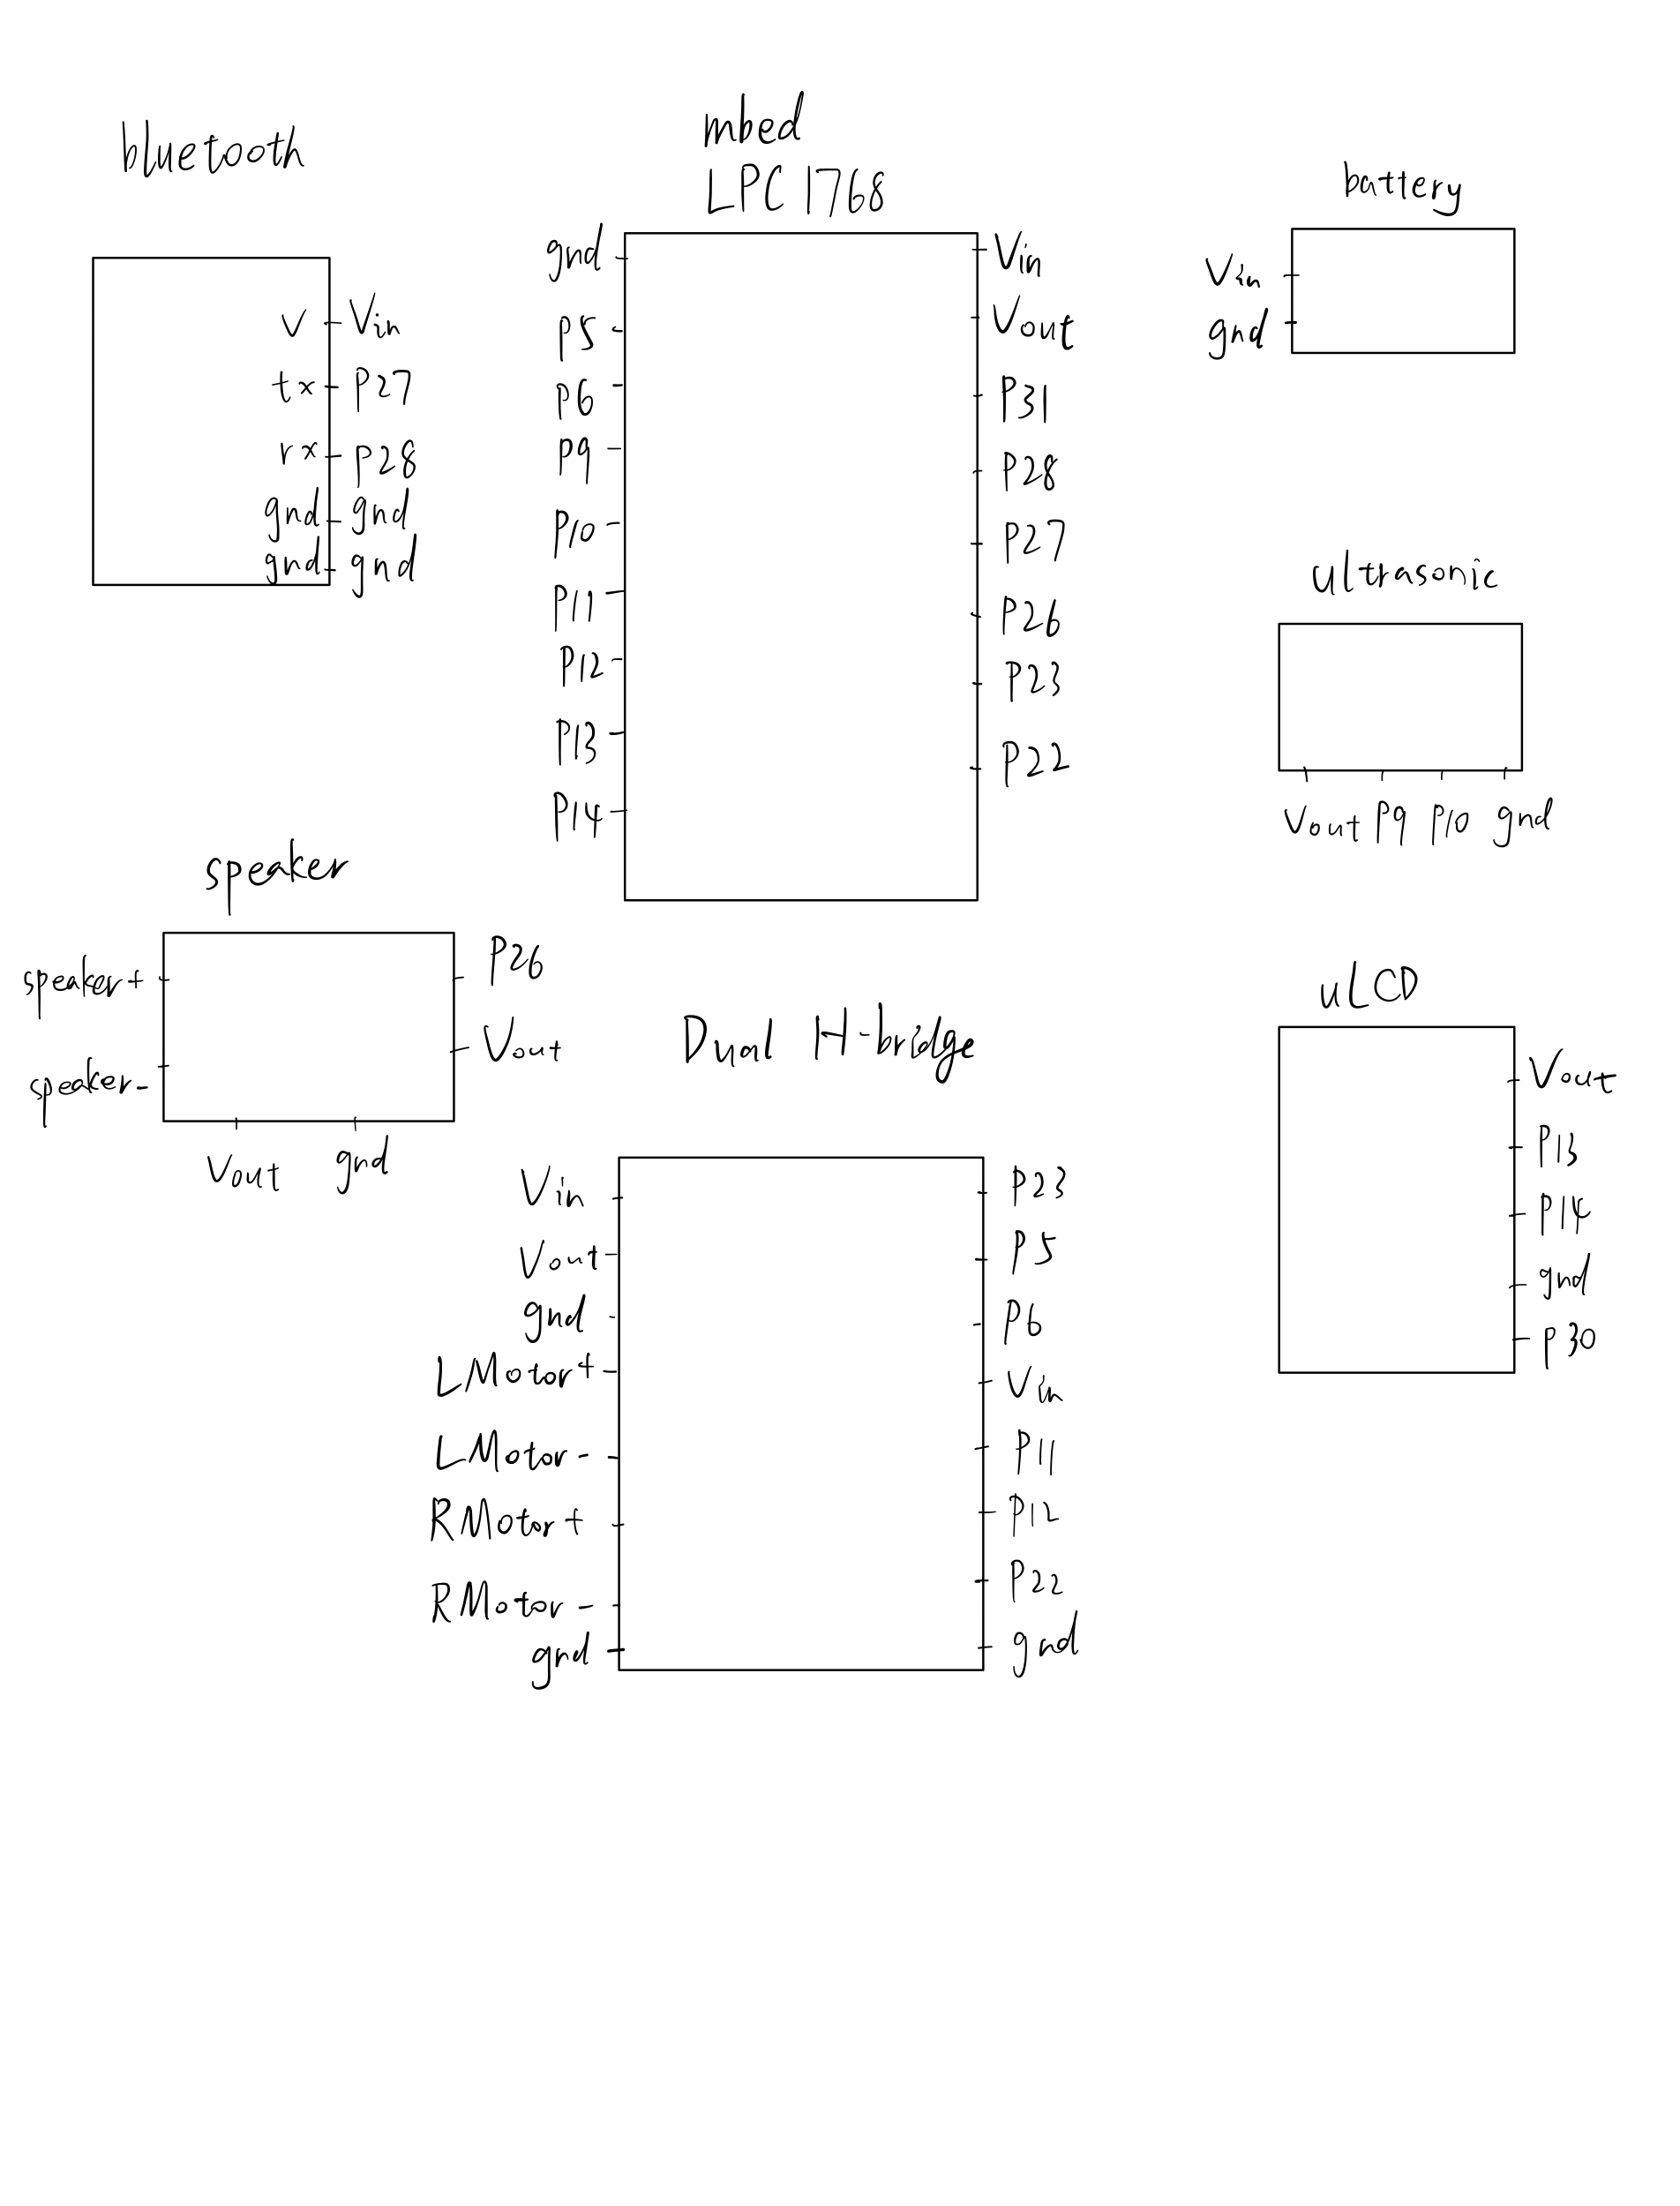 bluetooth
V Vin
tx P27
rx P28
gnd gnd
gnd gnd
mbed
LPC1768
gnd
P5
P6
P9
P10
P11
P12
P13
P14
Vin
Vout
P31
P28
P27
P26
P23
P22
battery
Vin
gnd
ultrasonic
Vout P9 P10 gnd
speaker
speaker+
speaker-
P26
Vout
Vout gnd
Dual H-bridge
Vin
Vout
gnd
LMotor+
LMotor-
RMotor+
RMotor-
gnd
P23
P5
P6
Vin
P11
P12
P22
gnd
uLCD
Vout
P13
P14
gnd
P30